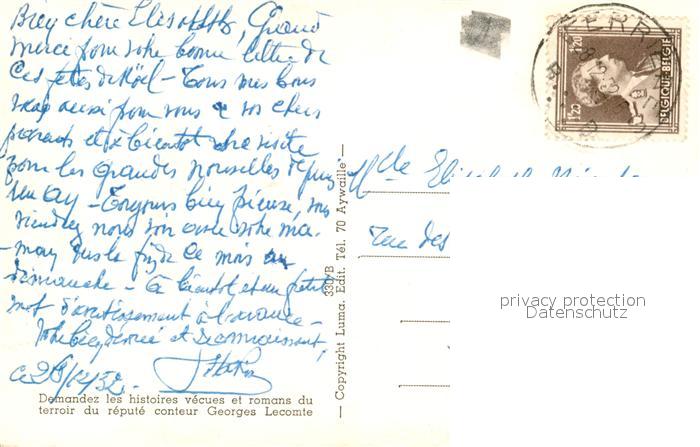 Bien chère Elisabeth, Grand
merci pour votre bonne lettre de
ces fêtes de Noël - Tous mes bons
vœux aussi pour vous & vos chers
parents et à bientôt votre visite
pour les grandes nouvelles depuis
un an - Toujours bien pieuse, vous
viendrez nous voir avec votre ma-
-man vers la fin de ce mois un
dimanche - à bientôt et un petit
mot d'avertissement à l'avance -
Votre bien dévoué et reconnaissant,
ce 28/12/52.
Demandez les histoires vécues et romans du
terroir du réputé conteur Georges Lecomte
— Copyright Luma. Edit. Tél. 70 Aywaille —
330/B
1F20
BELGIQUE-BELGIE
Mlle
Rue des
privacy protection
Datenschutz